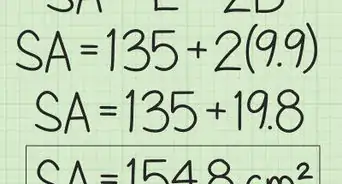 SA = 135 + 2(9.9)
SA = 135 + 19.8
SA = 154.8 cm²